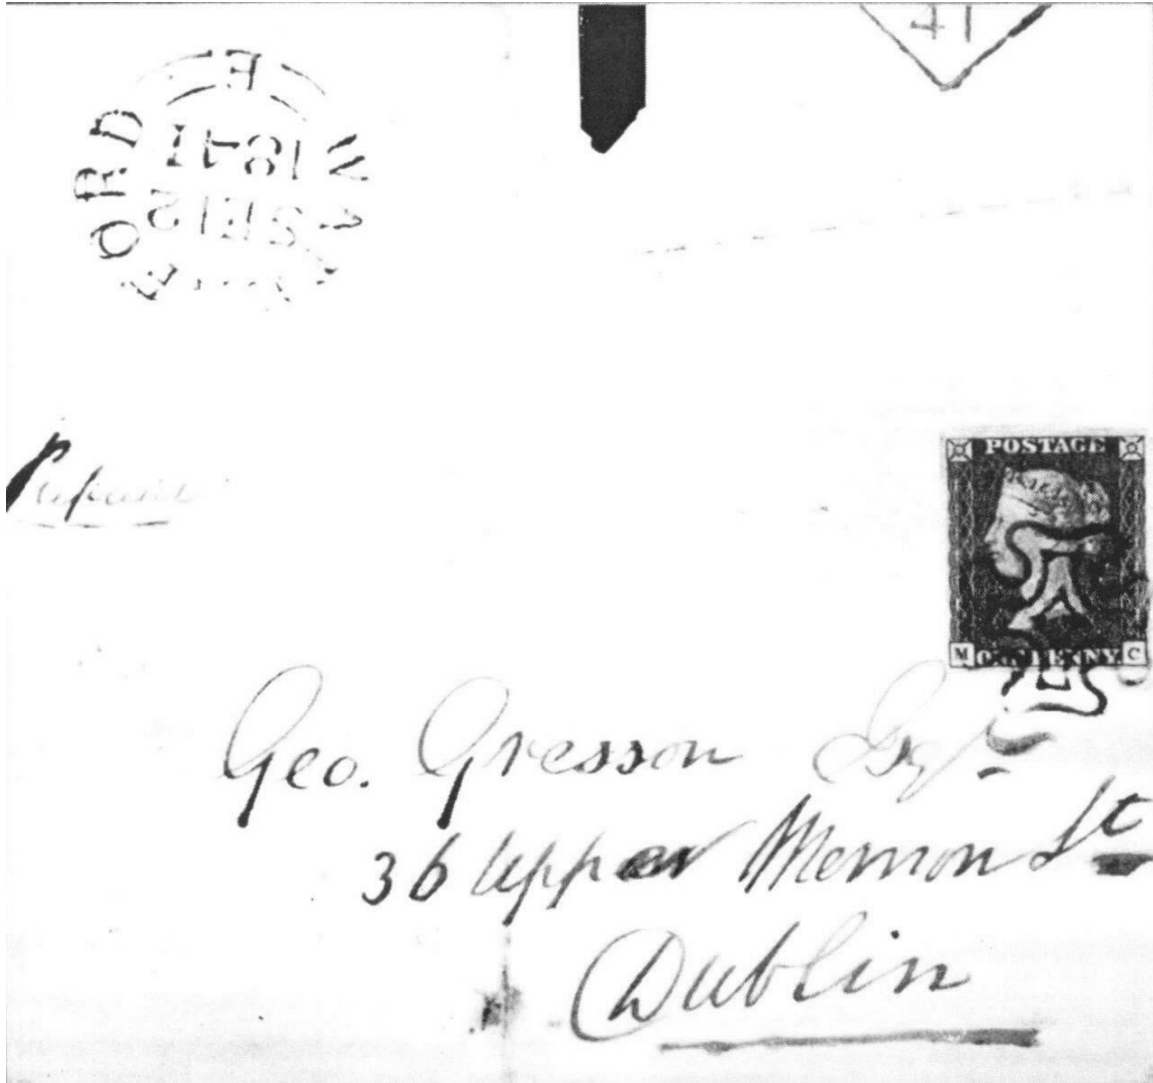 41
E
1841
SE 2
Prepaid
POSTAGE
M ONE PENNY C
Geo. Gresson Esqr
36 Upper Merrion St
Dublin